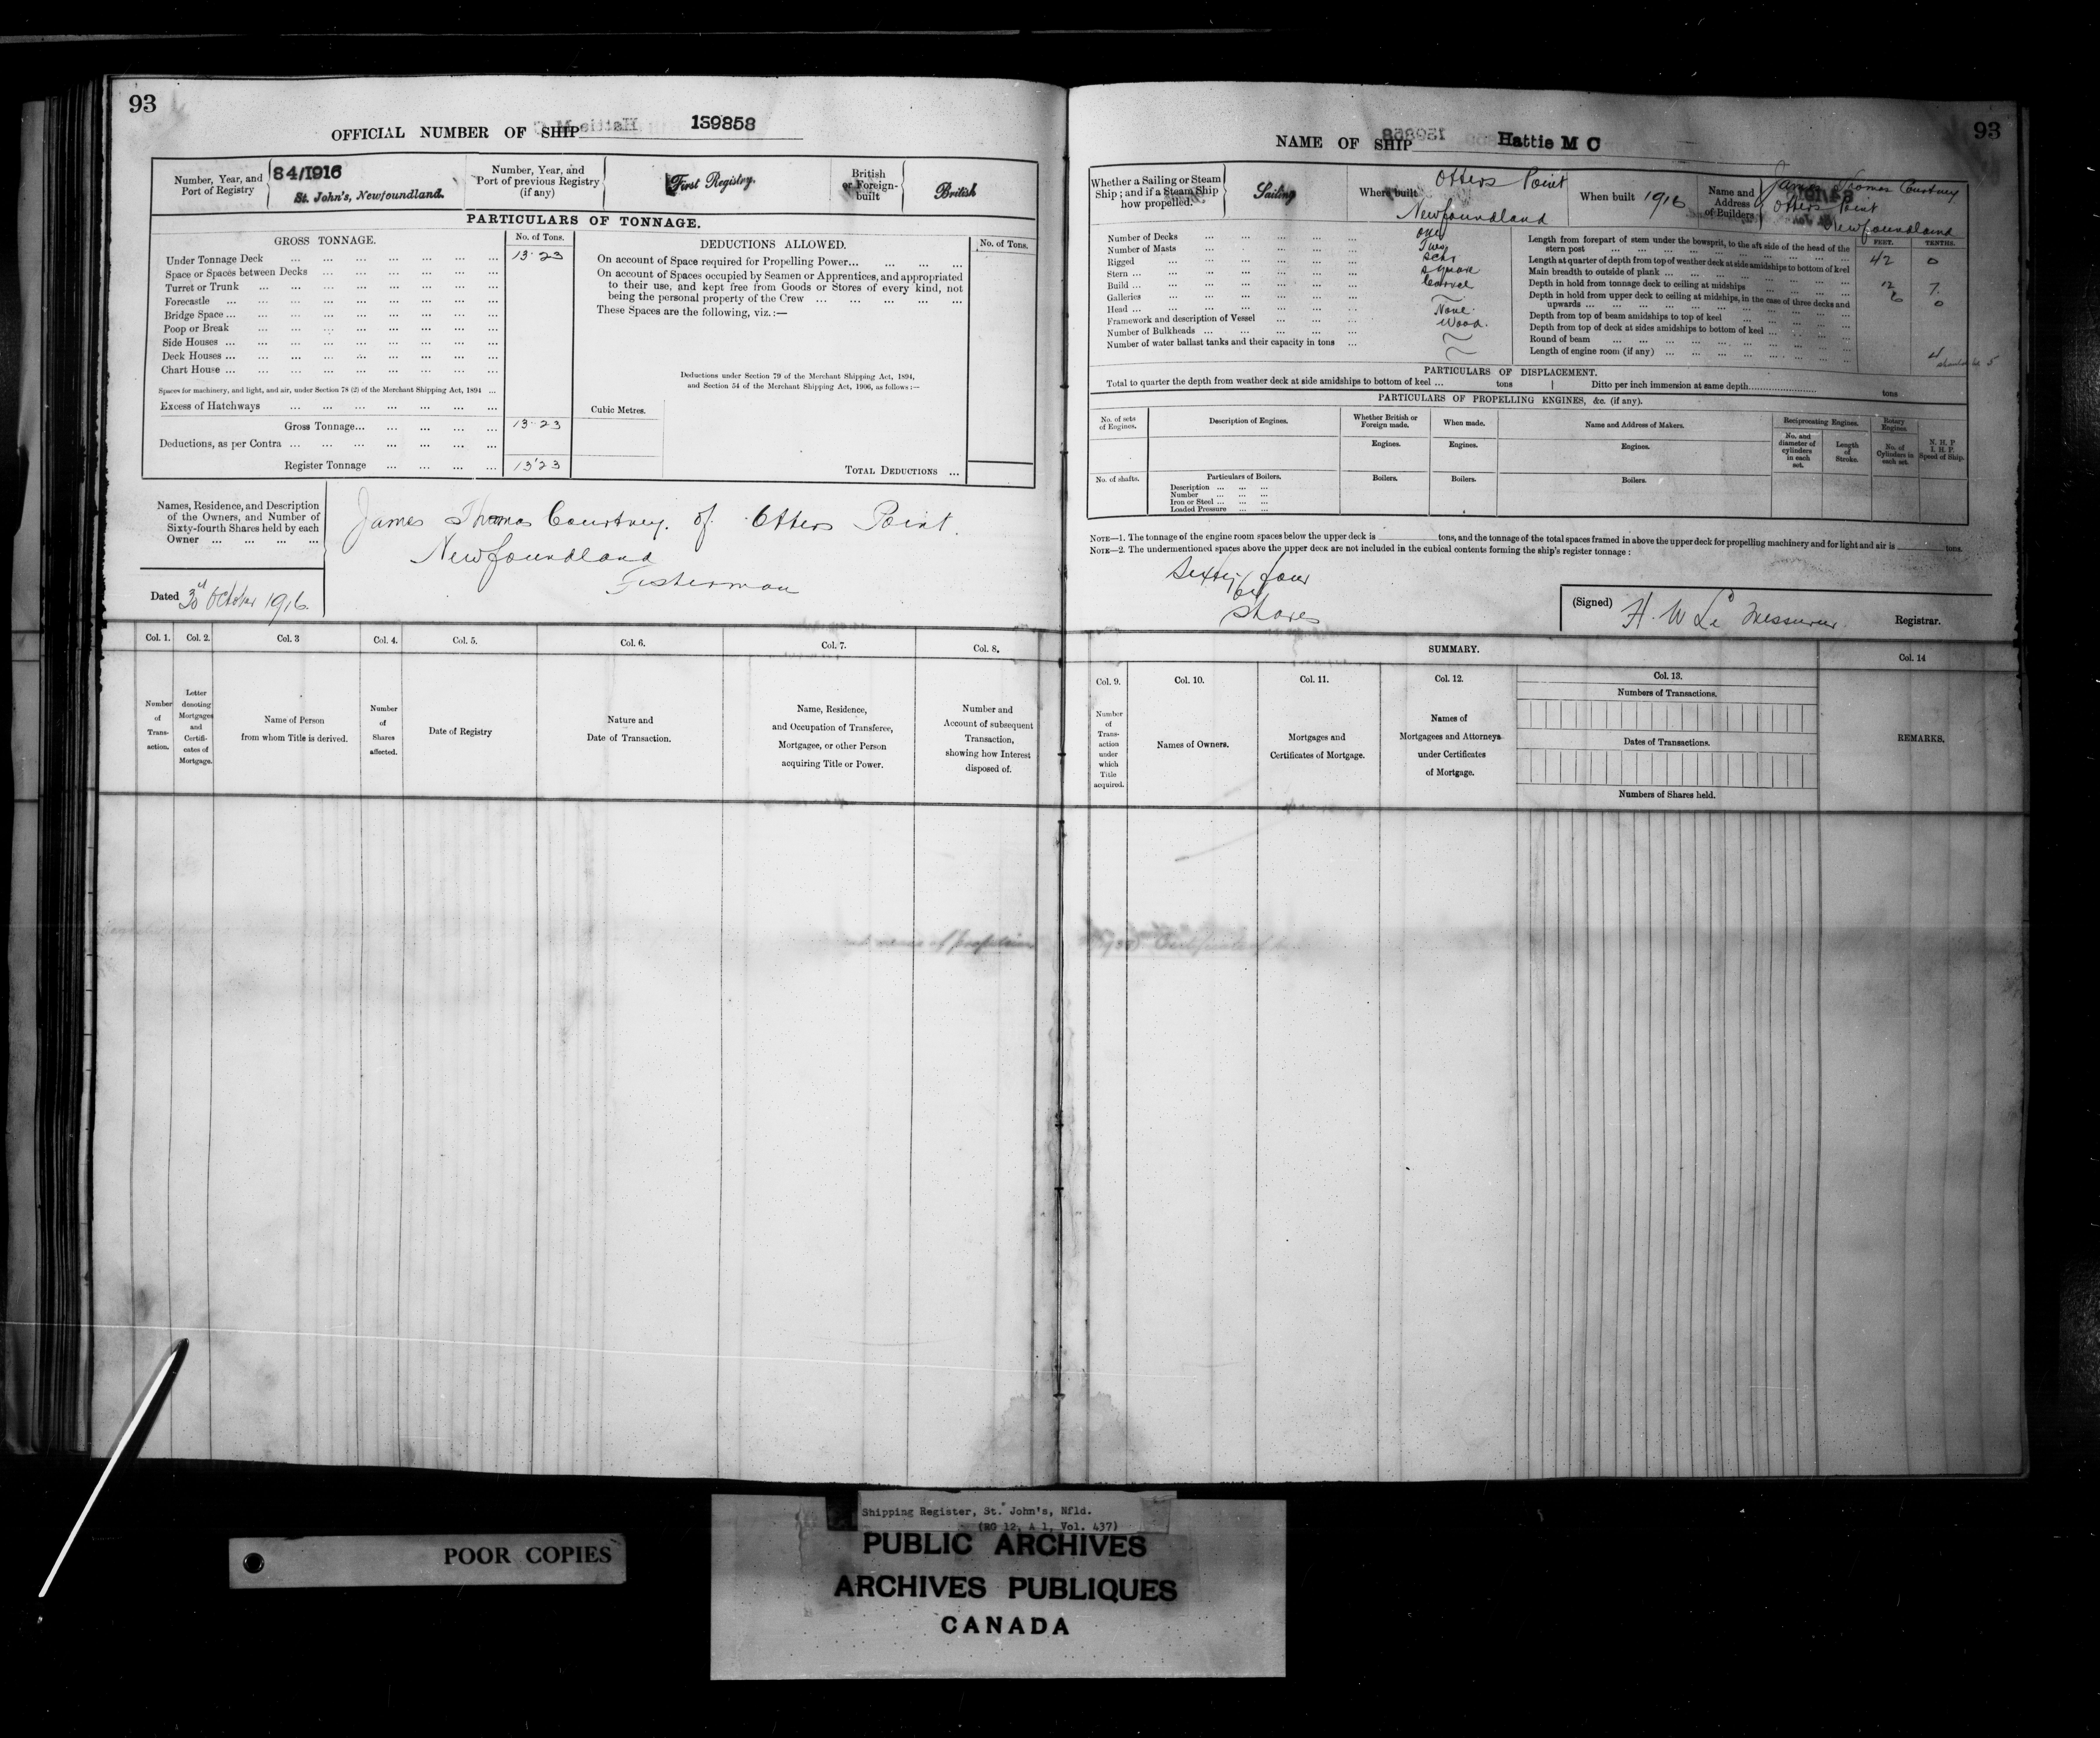 93
OFFICIAL NUMBER OF SHIP 139858
Number, Year, and Port of Registry
84/1916
St. John's, Newfoundland.
Number, Year, and Port of previous Registry (if any)
First Registry.
British or Foreign-built
British
PARTICULARS OF TONNAGE.
GROSS TONNAGE.
No. of Tons.
Under Tonnage Deck ... 13.23
Space or Spaces between Decks ...
Turret or Trunk ...
Forecastle ...
Bridge Space ...
Poop or Break ...
Side Houses ...
Deck Houses ...
Chart House ...
Spaces for machinery, and light, and air, under Section 78 (2) of the Merchant Shipping Act, 1894 ...
Excess of Hatchways ...
Gross Tonnage... 13.23
Deductions, as per Contra ...
Register Tonnage ... 13.23
DEDUCTIONS ALLOWED.
No. of Tons.
On account of Space required for Propelling Power...
On account of Spaces occupied by Seamen or Apprentices, and appropriated
to their use, and kept free from Goods or Stores of every kind, not
being the personal property of the Crew ...
These Spaces are the following, viz.:—
Deductions under Section 79 of the Merchant Shipping Act, 1894,
and Section 54 of the Merchant Shipping Act, 1906, as follows:—
Cubic Metres.
TOTAL DEDUCTIONS ...
Names, Residence, and Description
of the Owners, and Number of
Sixty-fourth Shares held by each
Owner ...
James Thomas Courtney. of Otters Point.
Newfoundland
Fisherman
Dated 30 October 1916
Col. 1.
Number of Transaction.
Col. 2.
Letter denoting Mortgages and Certificates of Mortgage.
Col. 3
Name of Person
from whom Title is derived.
Col. 4.
Number of Shares affected.
Col. 5.
Date of Registry
Col. 6.
Nature and
Date of Transaction.
Col. 7.
Name, Residence,
and Occupation of Transferee,
Mortgagee, or other Person
acquiring Title or Power.
Col. 8.
Number and
Account of subsequent
Transaction,
showing how Interest
disposed of.
93
NAME OF SHIP Hattie M C
Whether a Sailing or Steam Ship; and if a Steam Ship how propelled.
Sailing
Where built
Otters Point
Newfoundland
When built 1916
Name and Address of Builders
James Thomas Courtney
Otters Point
Newfoundland
Number of Decks ... One
Number of Masts ... Two
Rigged ... Schr
Stern ... Square
Build ... Carvel
Galleries ...
Head ... None.
Framework and description of Vessel ... Wood.
Number of Bulkheads ...
Number of water ballast tanks and their capacity in tons ...
FEET. TENTHS.
Length from forepart of stem under the bowsprit, to the aft side of the head of the
stern post ... 42 0
Length at quarter of depth from top of weather deck at side amidships to bottom of keel
Main breadth to outside of plank ... 12 7.
Depth in hold from tonnage deck to ceiling at midships ... 6 0
Depth in hold from upper deck to ceiling at midships, in the case of three decks and
upwards ...
Depth from top of beam amidships to top of keel ...
Depth from top of deck at sides amidships to bottom of keel ...
Round of beam ...
Length of engine room (if any) ...
PARTICULARS OF DISPLACEMENT.
Total to quarter the depth from weather deck at side amidships to bottom of keel ... tons
Ditto per inch immersion at same depth... tons
PARTICULARS OF PROPELLING ENGINES, &c. (if any).
No. of sets of Engines.
Description of Engines.
Whether British or Foreign made.
When made.
Name and Address of Makers.
Reciprocating Engines.
Rotary Engines.
Engines.
Engines.
Engines.
No. and diameter of cylinders in each set.
Length of Stroke.
No. of Cylinders in each set.
N. H. P
I. H. P.
Speed of Ship.
No. of shafts.
Particulars of Boilers.
Boilers.
Boilers.
Boilers.
Description ...
Number ...
Iron or Steel ...
Loaded Pressure ...
NOTE—1. The tonnage of the engine room spaces below the upper deck is tons, and the tonnage of the total spaces framed in above the upper deck for propelling machinery and for light and air is tons.
NOTE—2. The undermentioned spaces above the upper deck are not included in the cubical contents forming the ship's register tonnage:
Sixty four
Shares
(Signed) H. W Le Messurier. Registrar.
SUMMARY.
Col. 9.
Number of Transaction under which Title acquired.
Col. 10.
Names of Owners.
Col. 11.
Mortgages and
Certificates of Mortgage.
Col. 12.
Names of
Mortgagees and Attorneys
under Certificates
of Mortgage.
Col. 13.
Numbers of Transactions.
Dates of Transactions.
Numbers of Shares held.
Col. 14
REMARKS.
POOR COPIES
Shipping Register, St. John's, Nfld.
(RG 12, A 1, Vol. 437)
PUBLIC ARCHIVES
ARCHIVES PUBLIQUES
CANADA